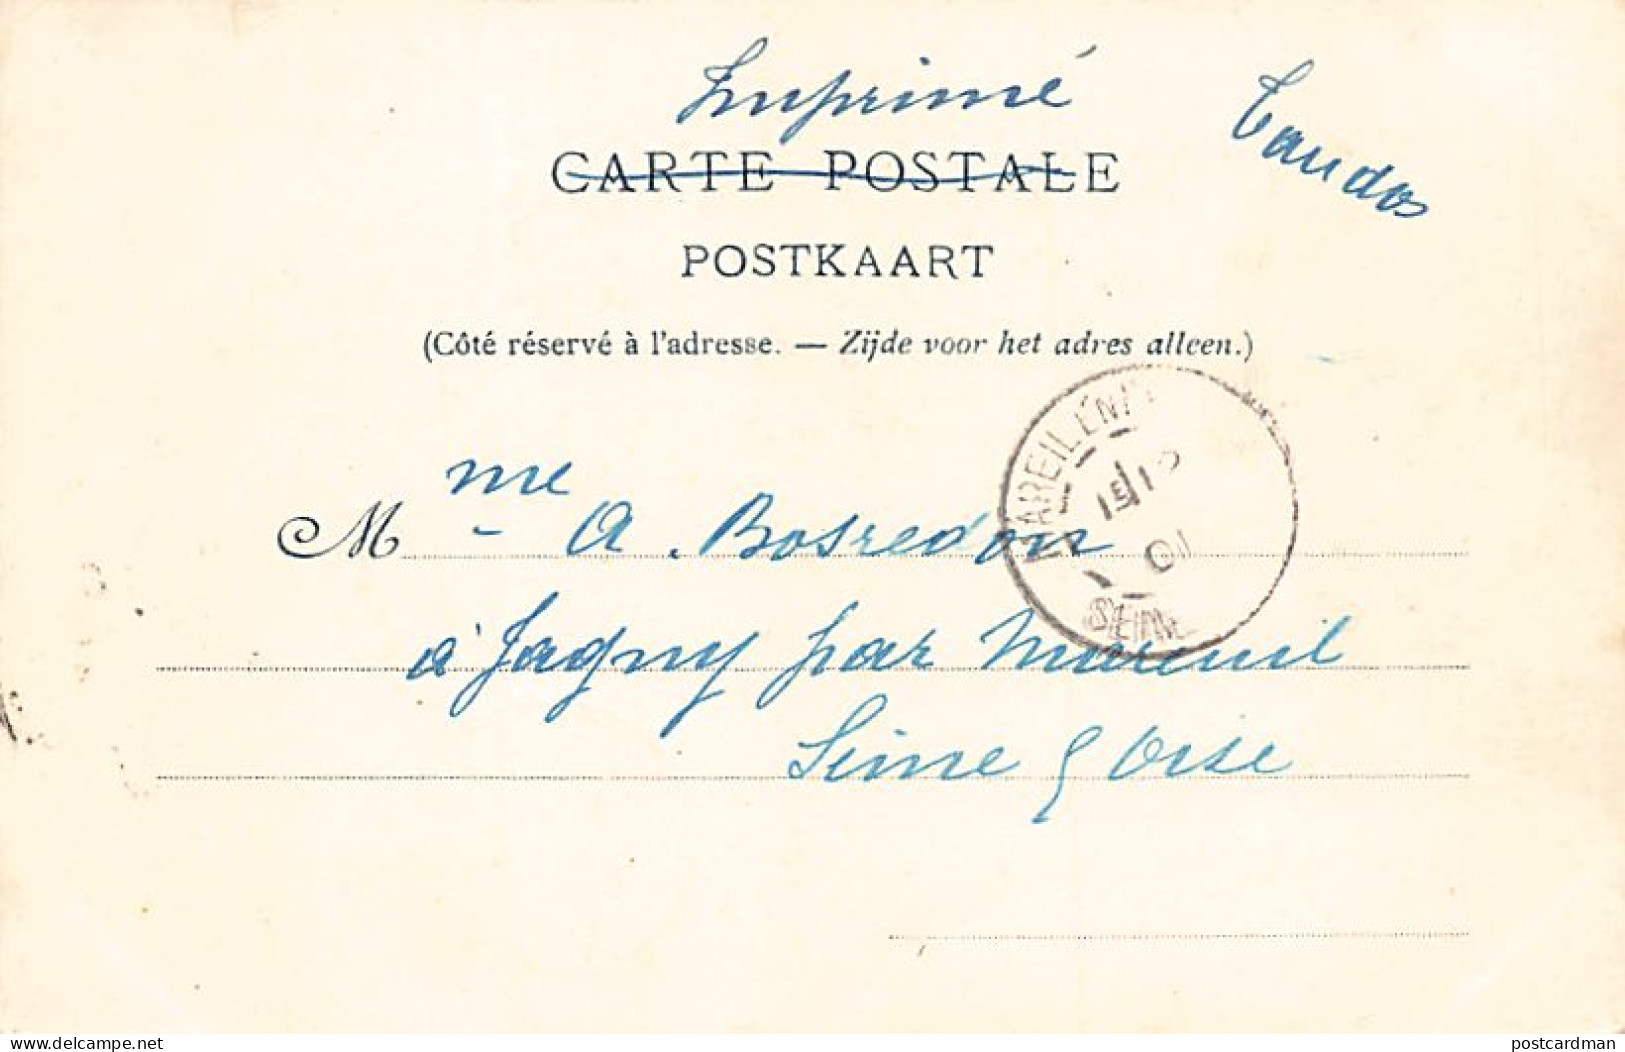 Imprimé
CARTE POSTALE
POSTKAART
(Côté réservé à l'adresse. — Zijde voor het adres alleen.)
Mme A. Bosredon
à Jagny par Mareuil
Seine & Oise
15 12
01
SEINE
www.delcampe.net
postcardman